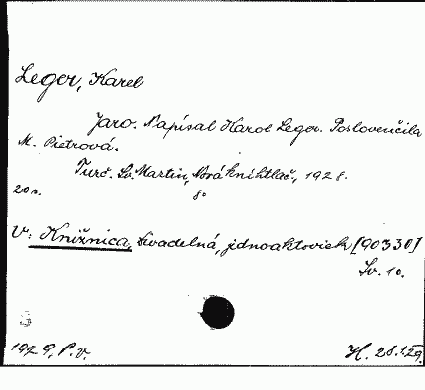 Leger, Karel
Jaro. Napísal Karol Leger. Poslovenčila
M. Pietrová.
Turč. Sv. Martin, Nová kníhtlač., 1928.
20 s. 8°
V: Knižnica, divadelná, jednoaktoviek [90330]
Sv. 10.
1929, P. v. H. 26.I.29.